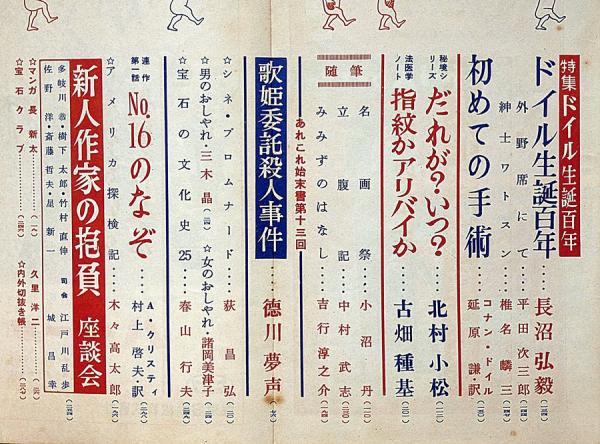 特集 ドイル生誕百年
ドイル生誕百年‥‥長沼弘毅
外野席にて‥‥平田次三郎
紳士ワトスン‥‥椎名麟三
初めての手術‥‥コナン・ドイル 延原謙・訳
秘境シリーズ だれが?いつ?‥‥北村小松
法医学ノート 指紋かアリバイか‥‥古畑種基
随筆
名画祭‥‥小沼丹
立腹記‥‥中村武志
みみずのはなし‥‥吉行淳之介
あれこれ始末書第十三回
歌姫委託殺人事件‥‥徳川夢声
☆シネ・プロムナード‥‥荻昌弘
☆男のおしゃれ・三木晶 ☆女のおしゃれ・諸岡美津子
☆宝石の文化史25‥‥春山行夫
連作第一話 No.16のなぞ‥‥A・クリスティ 村上啓夫・訳
☆アメリカ探検記‥‥木々高太郎
新人作家の抱負 座談会
多岐川恭・樹下太郎・竹村直伸 司会 江戸川乱歩
佐野洋・斎藤哲夫・星新一 城昌幸
☆マンガ 長新太 久里洋二
☆宝石クラブ ☆内外切抜き帳